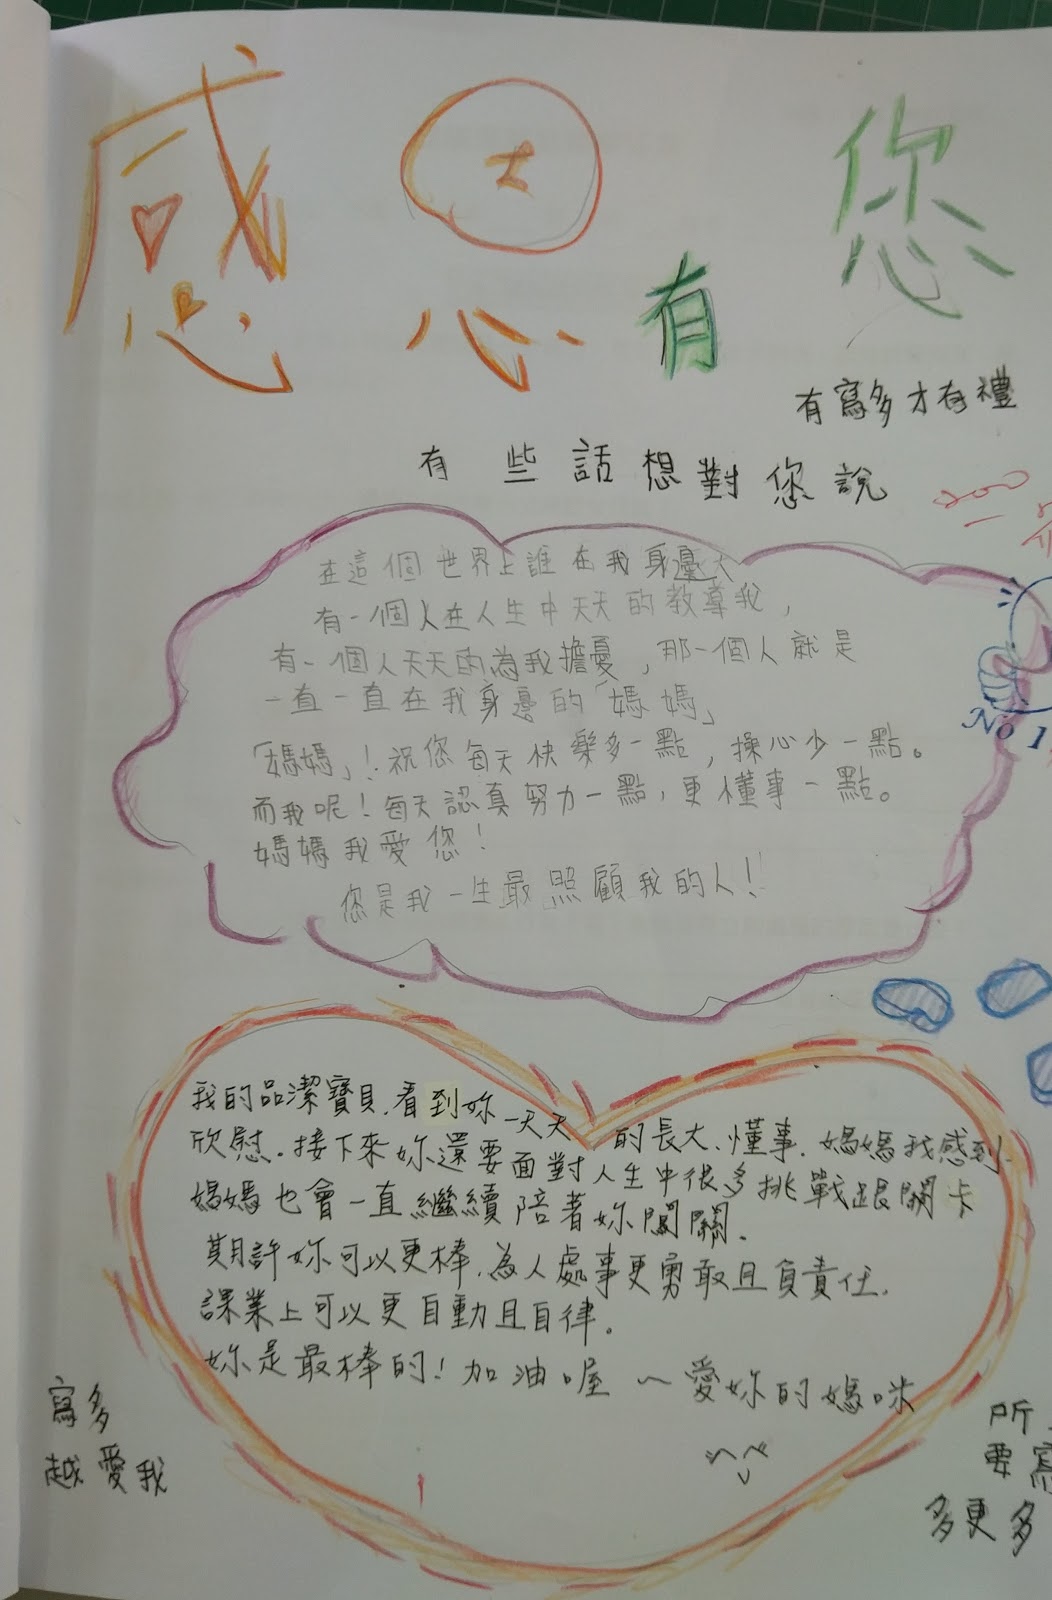 感恩有您
有寫多才有禮
有些話想對您說
在這個世界上誰在我身邊
有一個人在人生中天天的教導我，
有一個人天天的為我擔憂，那一個人就是
一直一直在我身邊的「媽媽」
「媽媽」！祝您每天快樂多一點，操心少一點。
而我呢！每天認真努力一點，更懂事一點。
媽媽我愛您！
您是我一生「最」照顧我的人！！
No 1
我的品潔寶貝，看到妳一天天的長大、懂事，媽媽我感到
欣慰。接下來妳還要面對人生中很多挑戰跟關卡
媽媽也會一直繼續陪著妳闖關。
期許妳可以更棒，為人處事更勇敢且負責任，
課業上可以更自動且自律。
妳是最棒的！加油喔～愛妳的媽咪
寫多
越愛我
所
要寫
多更多